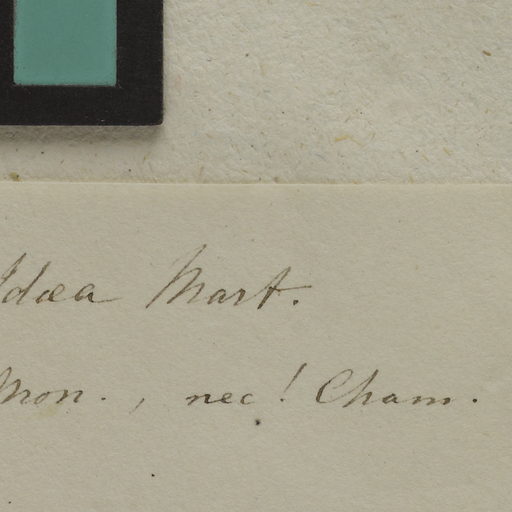 Idæa Mart.
Mon., nec! Cham.